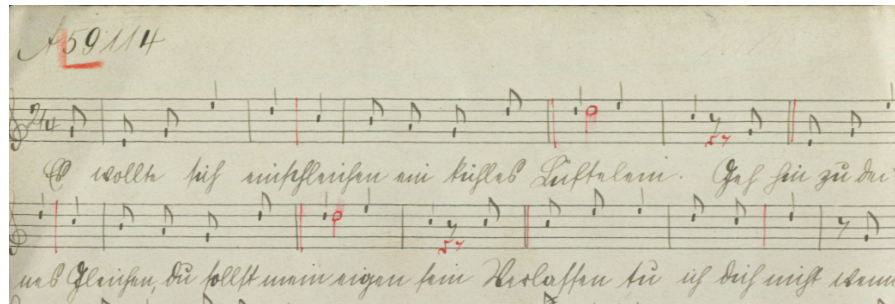 A 59114
2/4
Es wollte sich einschleichen ein kühles Lüftelein. Geh hin zu dei
nes Gleichen, du sollst mein eigen sein Verlassen tu ich dich nicht wenn